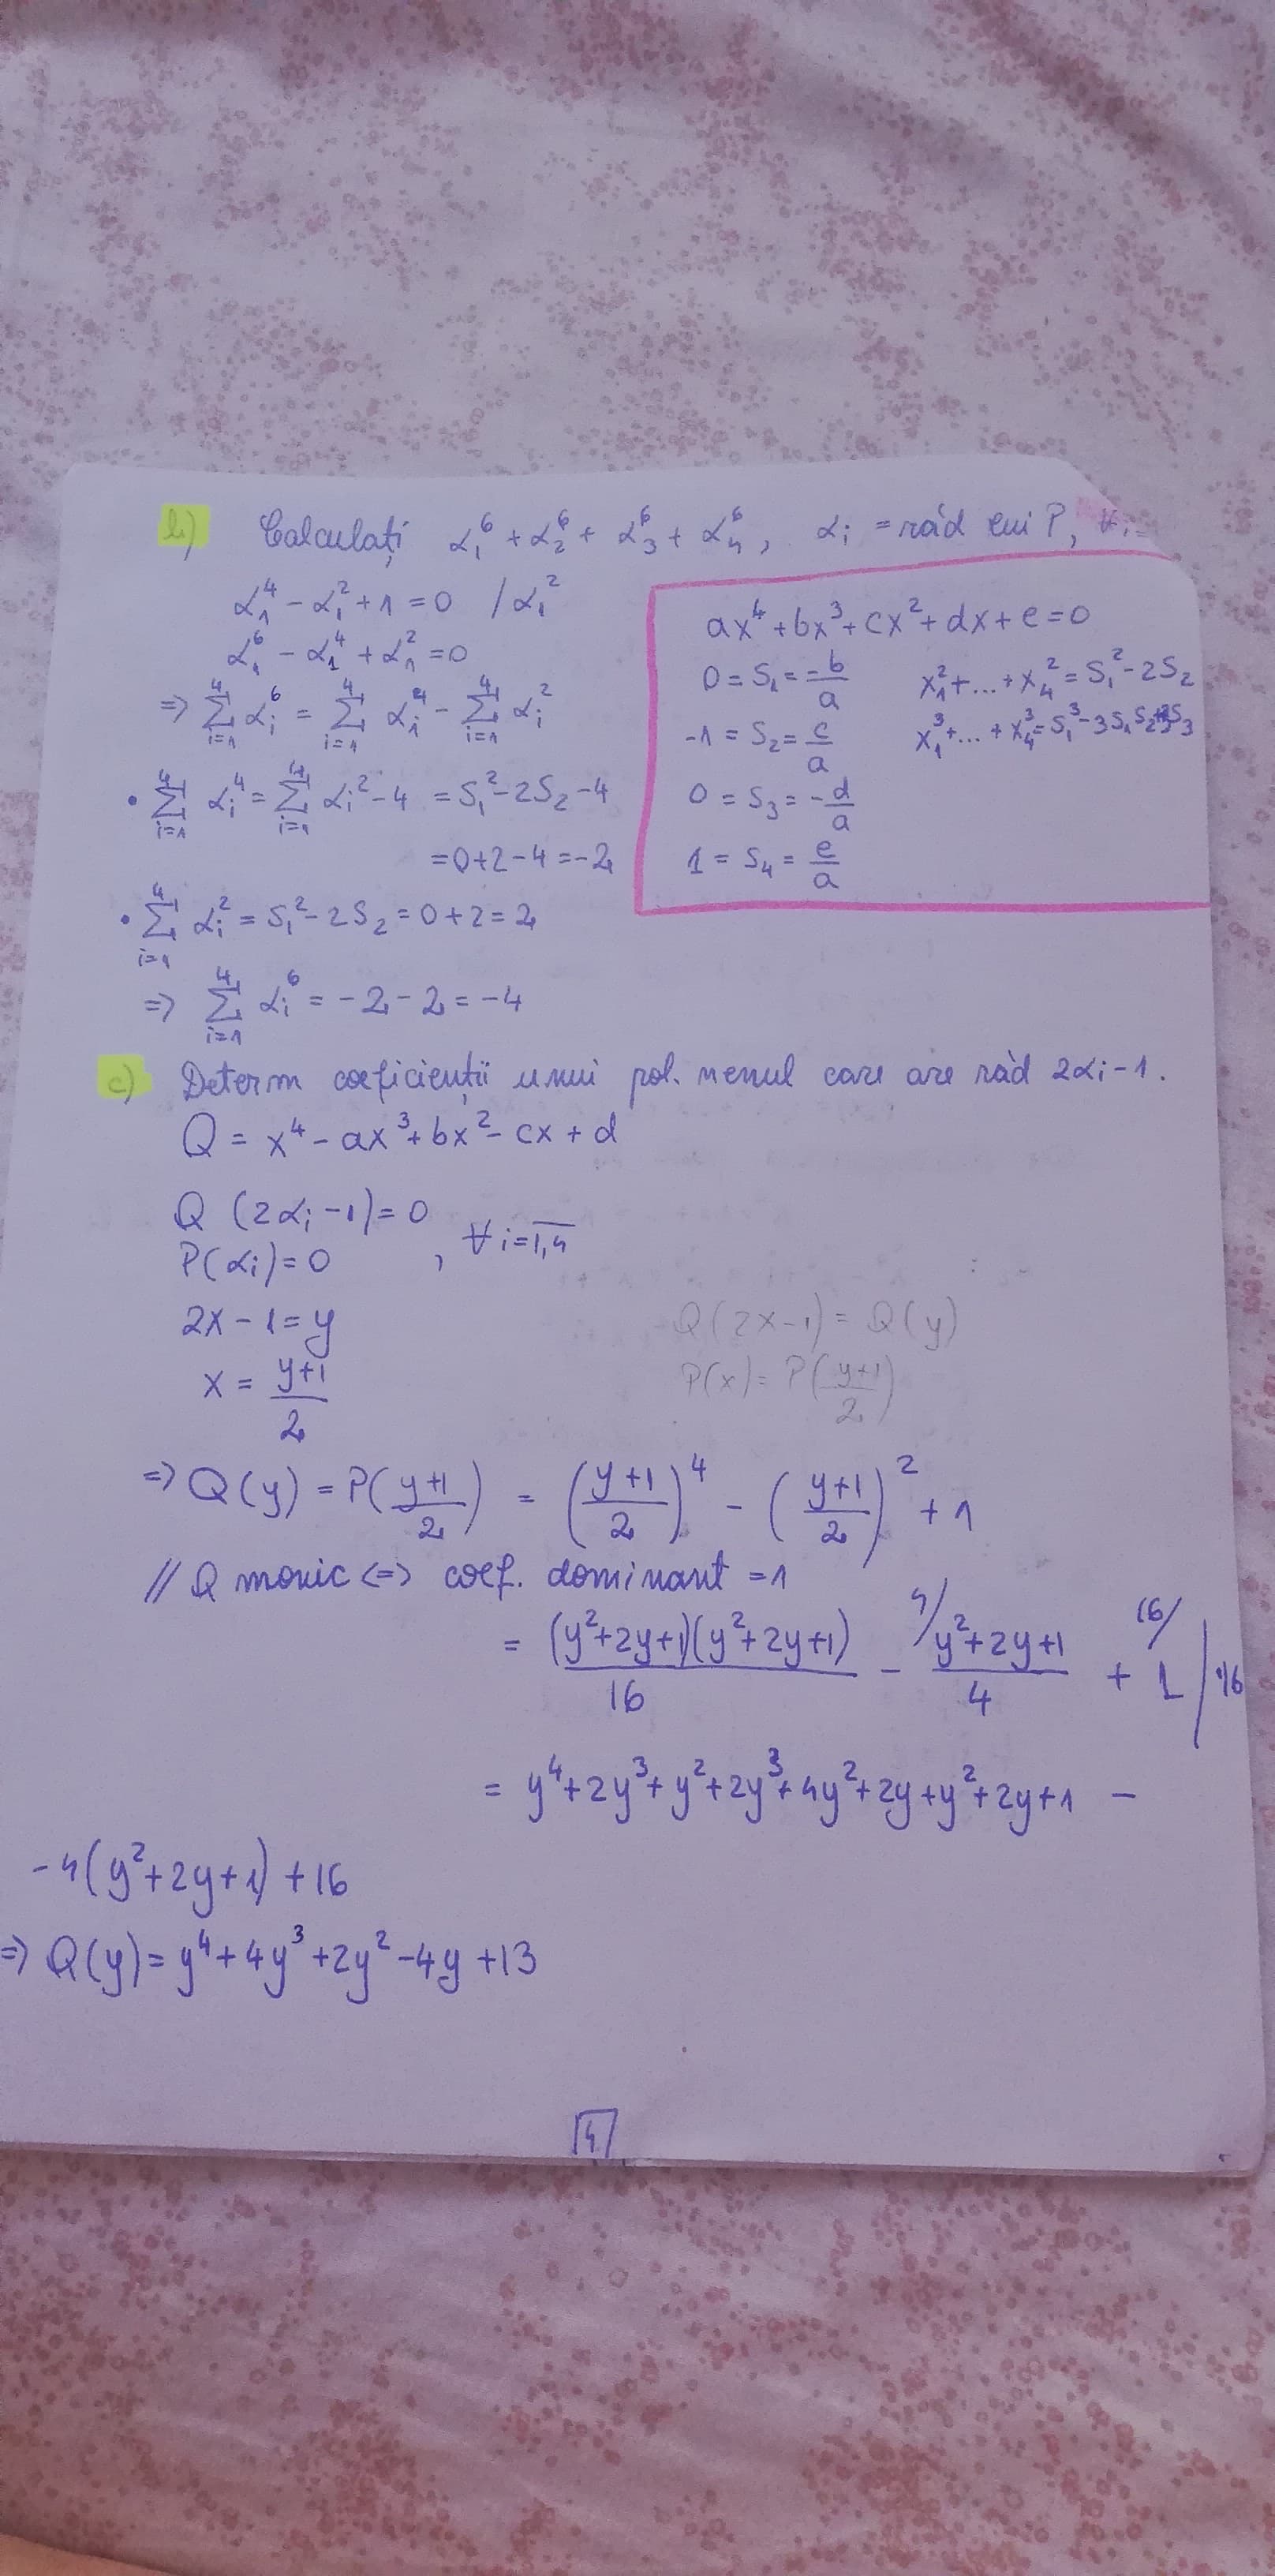 b) Calculați α₁⁶ + α₂⁶ + α₃⁶ + α₄⁶, αᵢ = răd lui P,
α₁⁴ - α₁² + 1 = 0 / α₁²
α₁⁶ - α₁⁴ + α₁² = 0
=> Σᵢ₌₁⁴ αᵢ⁶ = Σᵢ₌₁⁴ αᵢ⁴ - Σᵢ₌₁⁴ αᵢ²
• Σᵢ₌₁⁴ αᵢ⁴ = Σᵢ₌₁⁴ αᵢ² - 4 = S₁² - 2S₂ - 4
= 0 + 2 - 4 = -2
• Σᵢ₌₁⁴ αᵢ² = S₁² - 2S₂ = 0 + 2 = 2
=> Σᵢ₌₁⁴ αᵢ⁶ = -2 - 2 = -4
ax⁴ + bx³ + cx² + dx + e = 0
0 = S₁ = -b/a
x₁² + ... + x₄² = S₁² - 2S₂
-1 = S₂ = c/a
x₁³ + ... + x₄³ = S₁³ - 3S₁S₂ + 3S₃
0 = S₃ = -d/a
1 = S₄ = e/a
c) Determ coeficienții unui pol. care are răd 2αᵢ - 1.
Q = x⁴ - ax³ + bx² - cx + d
Q (2αᵢ - 1) = 0
P(αᵢ) = 0 , ∀ i = 1,4
2x - 1 = y
x = (y+1)/2
Q(2x-1) = Q(y)
P(x) = P((y+1)/2)
=> Q(y) = P((y+1)/2) = ((y+1)/2)⁴ - ((y+1)/2)² + 1
// Q monic <=> coef. dominant = 1
= (y²+2y+1)(y²+2y+1)/16 - ⁴/ (y²+2y+1)/4 + ¹⁶/ 1 | ·16
= y⁴ + 2y³ + y² + 2y³ + 4y² + 2y + y² + 2y + 1 -
- 4(y² + 2y + 1) + 16
=> Q(y) = y⁴ + 4y³ + 2y² - 4y + 13
4